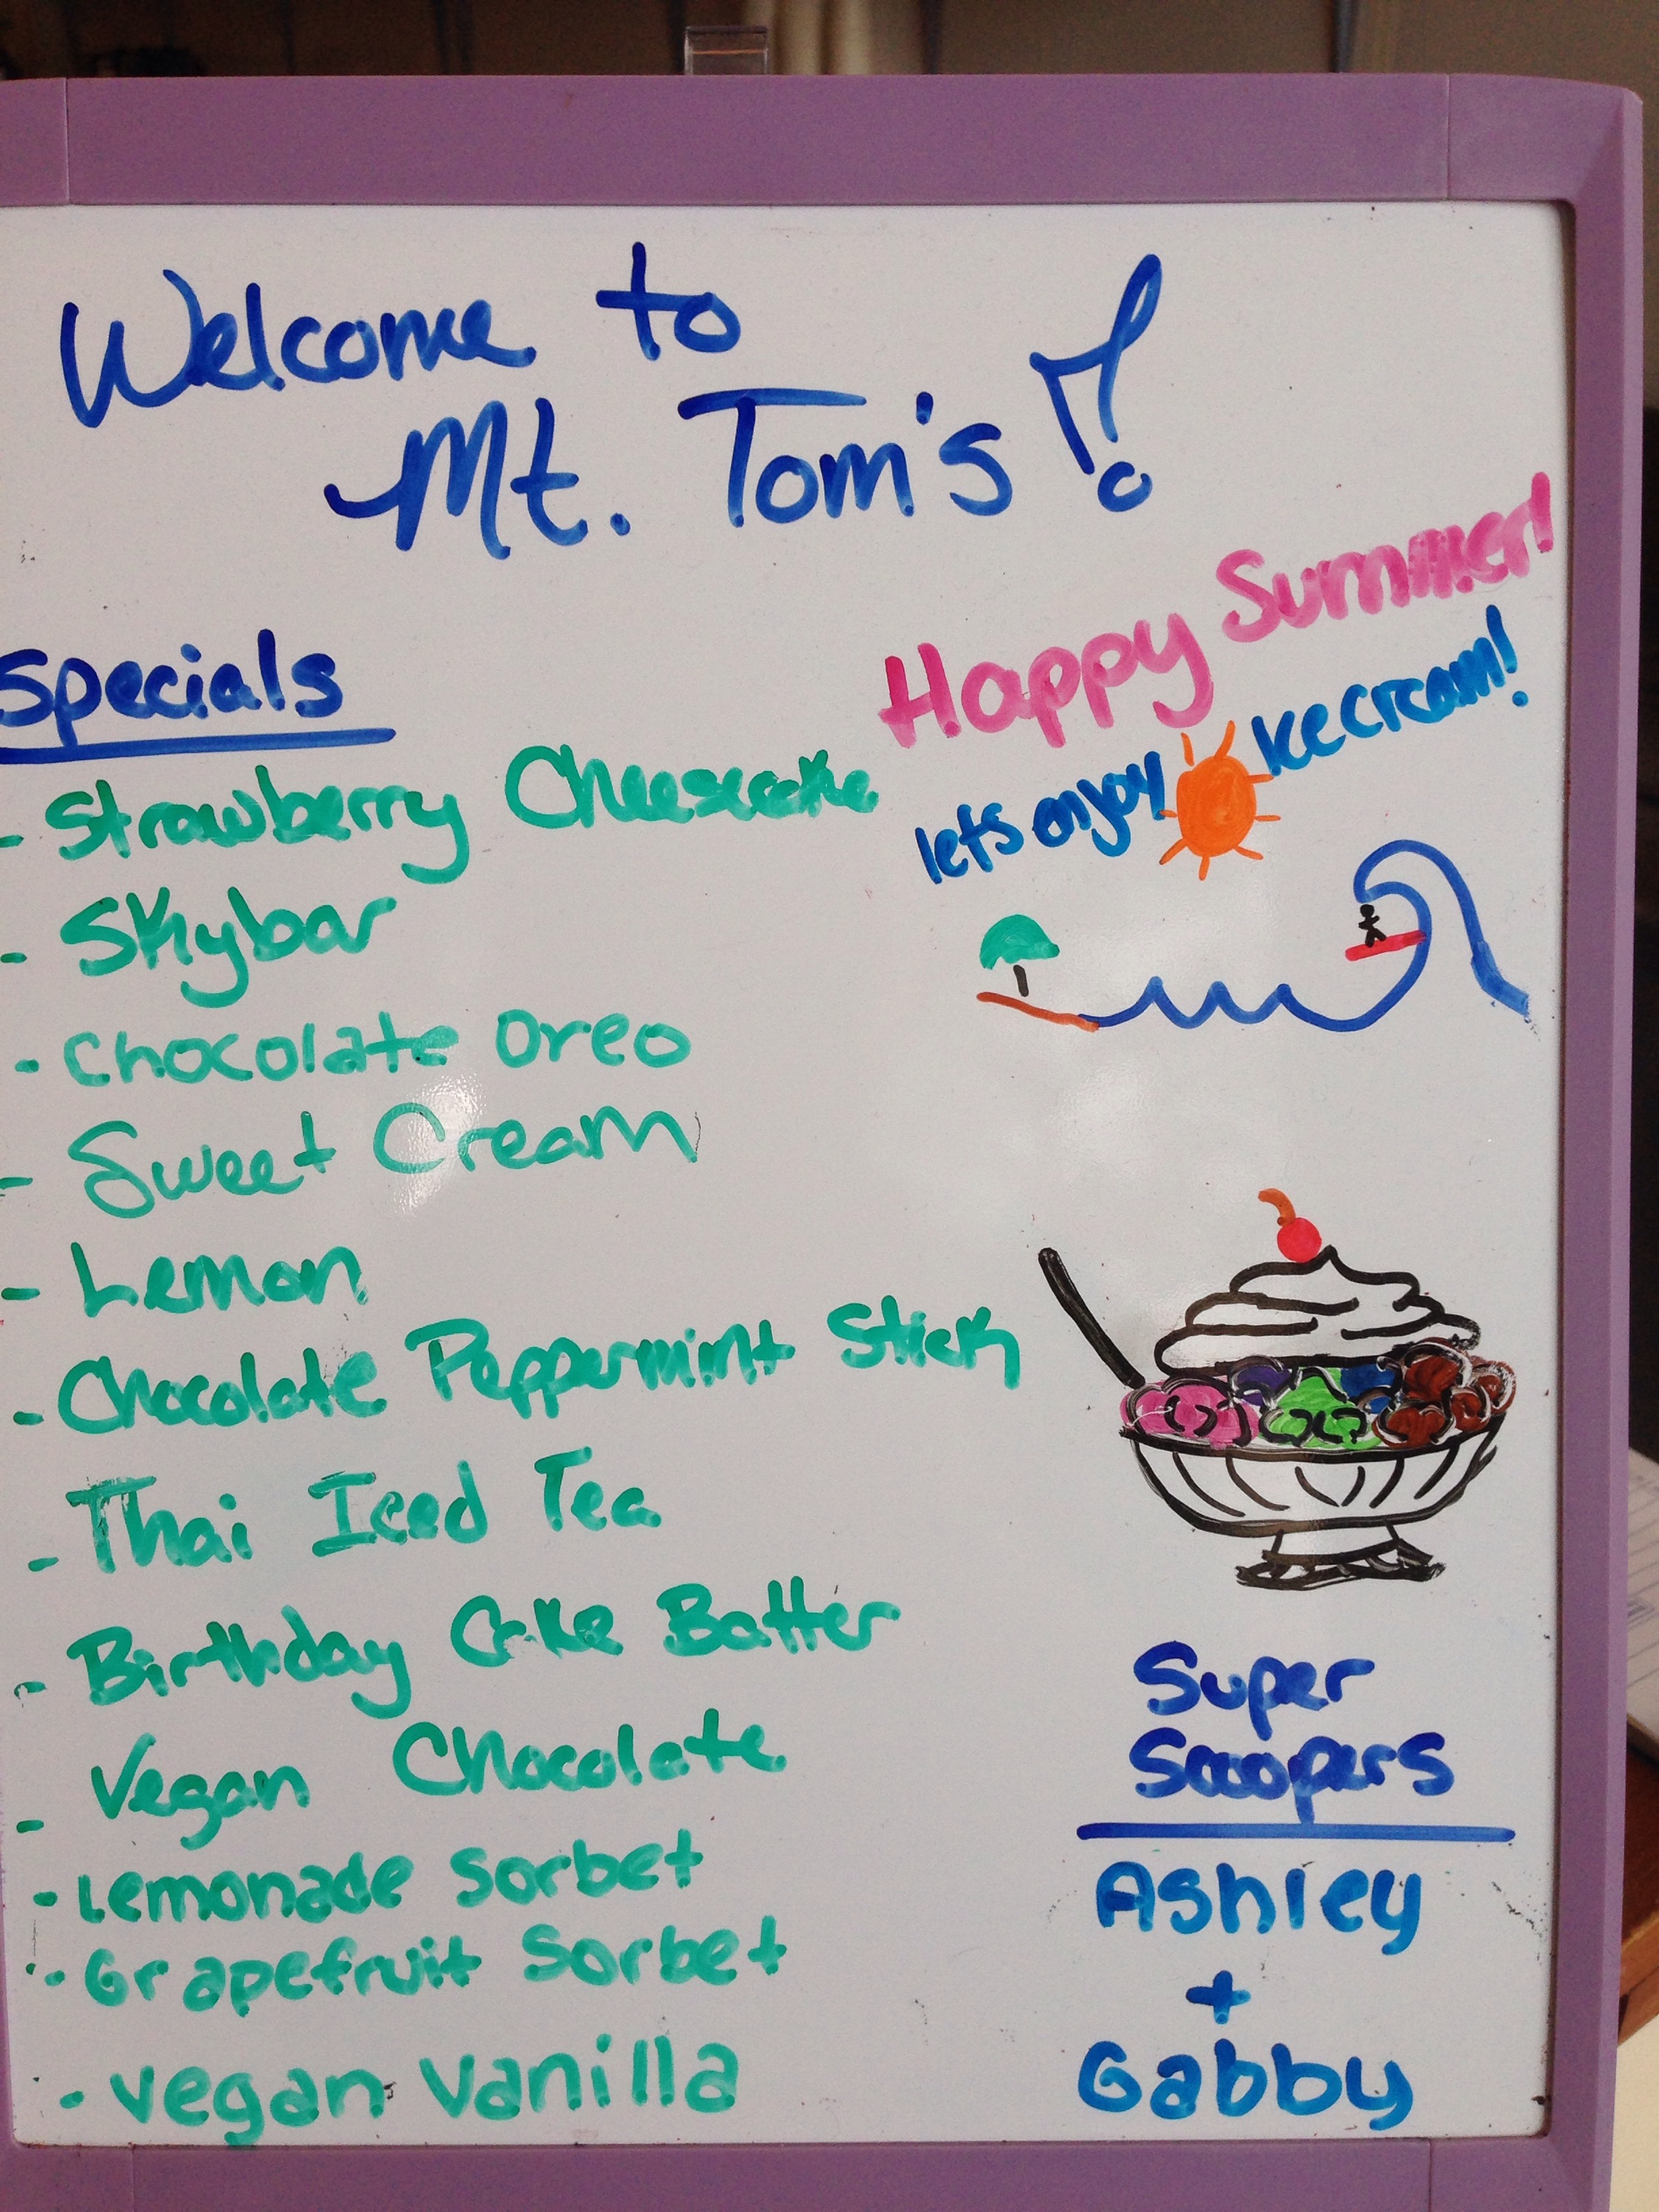 Welcome to
Mt. Tom's!
Happy Summer!
lets enjoy icecream!
Specials
- Strawberry Cheesecake
- Skybar
- Chocolate Oreo
- Sweet Cream
- Lemon
- Chocolate Peppermint Stick
- Thai Iced Tea
- Birthday Cake Batter
- Vegan Chocolate
- Lemonade Sorbet
- Grapefruit Sorbet
- Vegan Vanilla
Super
Scoopers
Ashley
+
Gabby